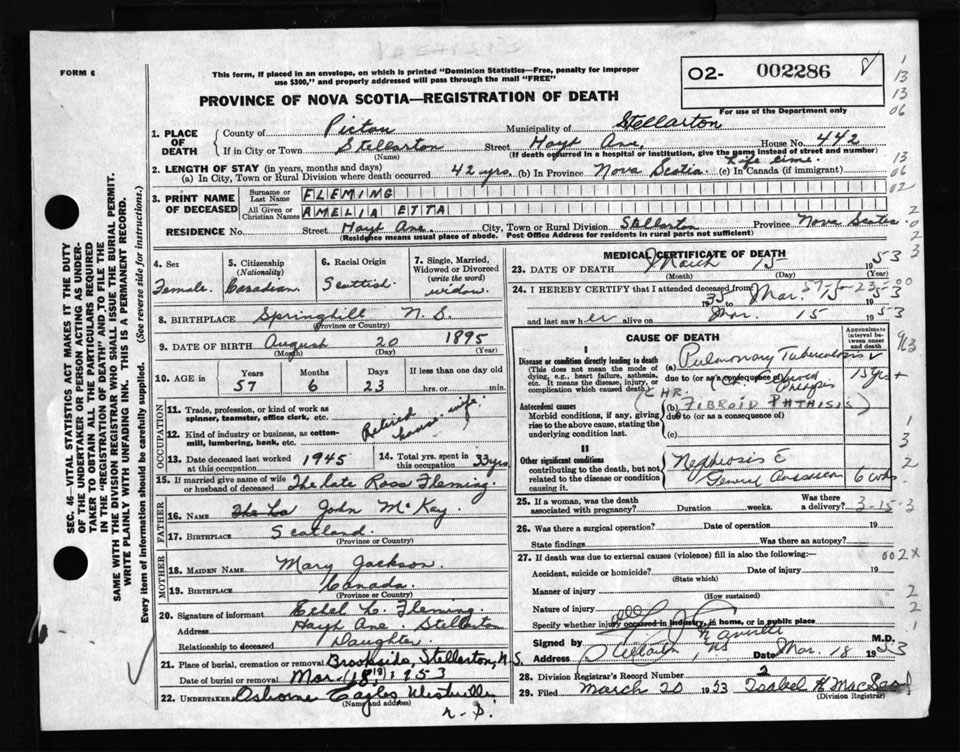 FORM 6
This form, if placed in an envelope, on which is printed "Dominion Statistics—Free, penalty for improper
use $300," and properly addressed will pass through the mail "FREE"
O2- 002286
For use of the Department only
PROVINCE OF NOVA SCOTIA—REGISTRATION OF DEATH
1. PLACE OF DEATH
County of Pictou Municipality of Stellarton
If in City or Town Stellarton Street Hoyt Ave. House No. 442
(Name) (If death occurred in a hospital or institution, give the name instead of street and number)
2. LENGTH OF STAY (in years, months and days)
(a) In City, Town or Rural Division where death occurred 42 yrs. (b) In Province Nova Scotia (c) In Canada (if immigrant) Life time.
3. PRINT NAME OF DECEASED
Surname or Last Name FLEMING
All Given or Christian Names AMELIA ETTA
RESIDENCE No. Street Hoyt Ave. City, Town or Rural Division Stellarton Province Nova Scotia
(Residence means usual place of abode. Post Office Address for residents in rural parts not sufficient)
4. Sex Female
5. Citizenship (Nationality) Canadian
6. Racial Origin Scottish
7. Single, Married, Widowed or Divorced (write the word) widow
8. BIRTHPLACE Springhill N.S.
(Province or Country)
9. DATE OF BIRTH August 20 1895
(Month) (Day) (Year)
10. AGE in Years 57 Months 6 Days 23 If less than one day old
hrs. or min.
OCCUPATION
11. Trade, profession, or kind of work as spinner, teamster, office clerk, etc.
12. Kind of industry or business, as cotton-mill, lumbering, bank, etc.
Retired house wife.
13. Date deceased last worked at this occupation 1945
14. Total yrs. spent in this occupation 33yrs
15. If married give name of wife or husband of deceased The late Ross Fleming.
FATHER
16. NAME John McKay
17. BIRTHPLACE Scotland
(Province or Country)
MOTHER
18. MAIDEN NAME Mary Jackson
19. BIRTHPLACE Canada.
(Province or Country)
20. Signature of informant Ethel L. Fleming.
Address Hoyt Ave. Stellarton
Relationship to deceased Daughter.
21. Place of burial, cremation or removal Brookside, Stellarton, N.S.
Date of burial or removal Mar. (18th) 1953
22. UNDERTAKER Osborne Eagles Westville
(Name and address) N.S.
MEDICAL CERTIFICATE OF DEATH
23. DATE OF DEATH March 15 1953
(Month) (Day)
24. I HEREBY CERTIFY that I attended deceased from
35 to Mar. 15 1953
and last saw her alive on Mar. 15 1953
CAUSE OF DEATH
Approximate interval between onset and death
I
Disease or condition directly leading to death
(This does not mean the mode of dying, e.g., heart failure, asthenia, etc. It means the disease, injury, or complication which caused death.)
(a) Pulmonary Tuberculosis 15 yrs +
due to (or as a consequence of)
Antecedent causes
Morbid conditions, if any, giving rise to the above cause, stating the underlying condition last.
(CHR. (b) FIBROID PHTHISIS)
due to (or as a consequence of)
(c)
II
Other significant conditions
contributing to the death, but not related to the disease or condition causing it.
Nephrosis c
General Anasarca 6 wks.
25. If a woman, was the death associated with pregnancy? Duration weeks. Was there a delivery?
3-15-3
26. Was there a surgical operation? Date of operation 19
State findings Was there an autopsy?
27. If death was due to external causes (violence) fill in also the following:—
002X
Accident, suicide or homicide? Date of injury 19
(State which)
Manner of injury
(How sustained)
Nature of injury
Specify whether injury occurred in industry, in home, or in public place
Signed by M.D.
Address Stellarton, NS Date Mar. 18 1953
28. Division Registrar's Record Number 2
29. Filed March 20 1953 Isabel H MacLeod
(Division Registrar)
SEC. 46—VITAL STATISTICS ACT MAKES IT THE DUTY
OF THE UNDERTAKER OR PERSON ACTING AS UNDER-
TAKER TO OBTAIN ALL THE PARTICULARS REQUIRED
IN THE "REGISTRATION OF DEATH" AND TO FILE THE
SAME WITH THE DIVISION REGISTRAR WHO SHALL ISSUE THE BURIAL PERMIT.
WRITE PLAINLY WITH UNFADING INK—THIS IS A PERMANENT RECORD.
Every item of information should be carefully supplied. (See reverse side for instructions.)